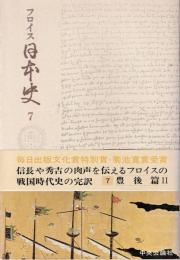 フロイス
日本史
7
毎日出版文化賞特別賞・菊池寛賞受賞
信長や秀吉の肉声を伝えるフロイスの
戦国時代史の完訳 7 豊後篇II
中央公論社